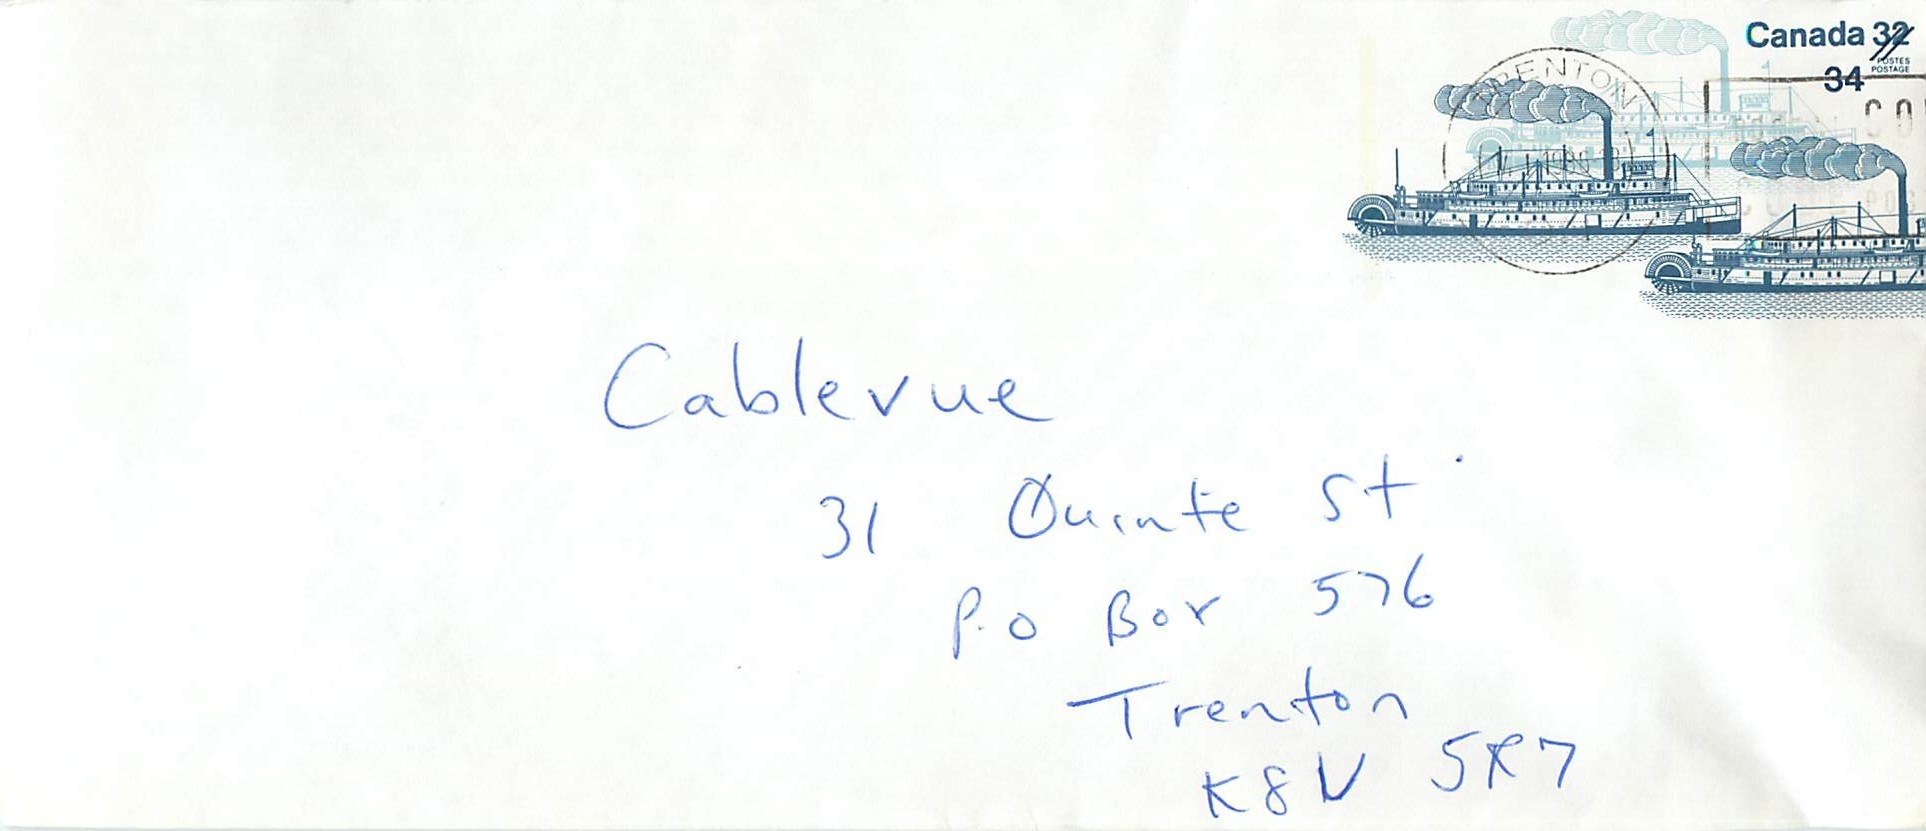 Canada 32
POSTES
POSTAGE
34
TRENTON
CO
Cablevue
31 Quinte St
P.O Box 576
Trenton
K8V 5R7